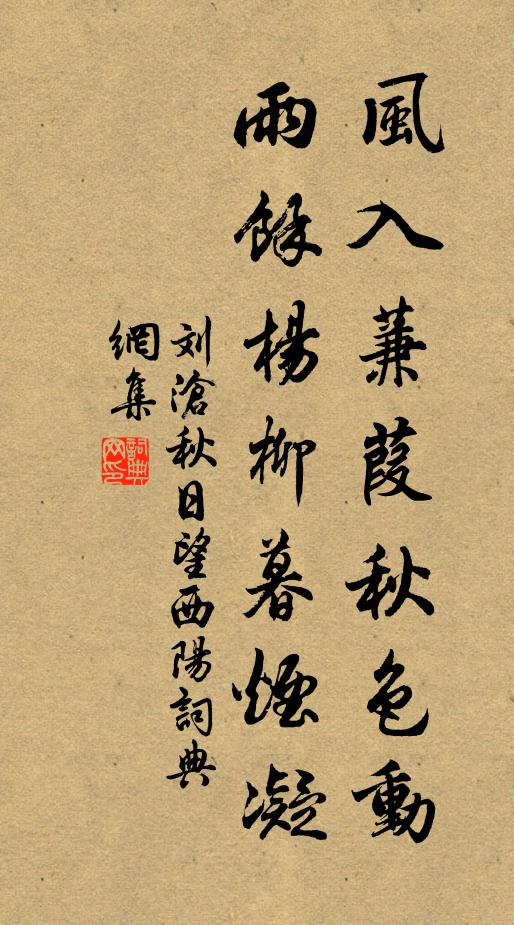 風入蒹葭秋色動
雨餘楊柳暮煙凝
刘滄秋日望西陽詞典
網集
詞典网印